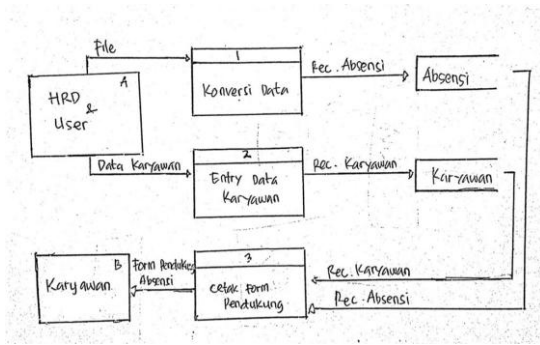 File
1
Konversi Data
Rec. Absensi
Absensi
A
HRD
&
User
Data Karyawan
2
Entry Data
Karyawan
Rec. Karyawan
Karyawan
B
Karyawan
Form Pendukung
Absensi
3
Cetak Form
Pendukung
Rec. Karyawan
Rec. Absensi